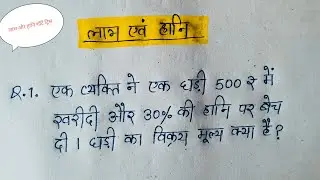 लाभ एवं हानि
Q.1. एक व्यक्ति ने एक घड़ी 500 ₹ में
खरीदी और 30% की हानि पर बेच
दी । घड़ी का विक्रय मूल्य क्या है ?